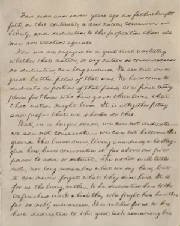 Four score and seven years ago our fathers brought
forth, on this continent, a new nation, conceived in
liberty, and dedicated to the proposition that all
men are created equal.
Now we are engaged in a great civil war, testing
whether that nation, or any nation so conceived
so dedicated, can long endure. We are met on a
great battle field of that war. We have come to
dedicate a portion of that field, as a final resting
place for those who here gave their lives, that
that nation might live. It is altogether fitting
and proper that we should do this.
But, in a larger sense, we can not dedicate
we can not consecrate we can not hallow this
ground. The brave men, living and dead,
here, have consecrated it far above our poor
power to add or detract. The world will little
note, nor long remember what we say here, but
it can never forget what they did here. It is
for us the living, rather, to be dedicated here to the
unfinished work which they who fought here have thus
far so nobly advanced. It is rather for us to be
here dedicated to the great task remaining